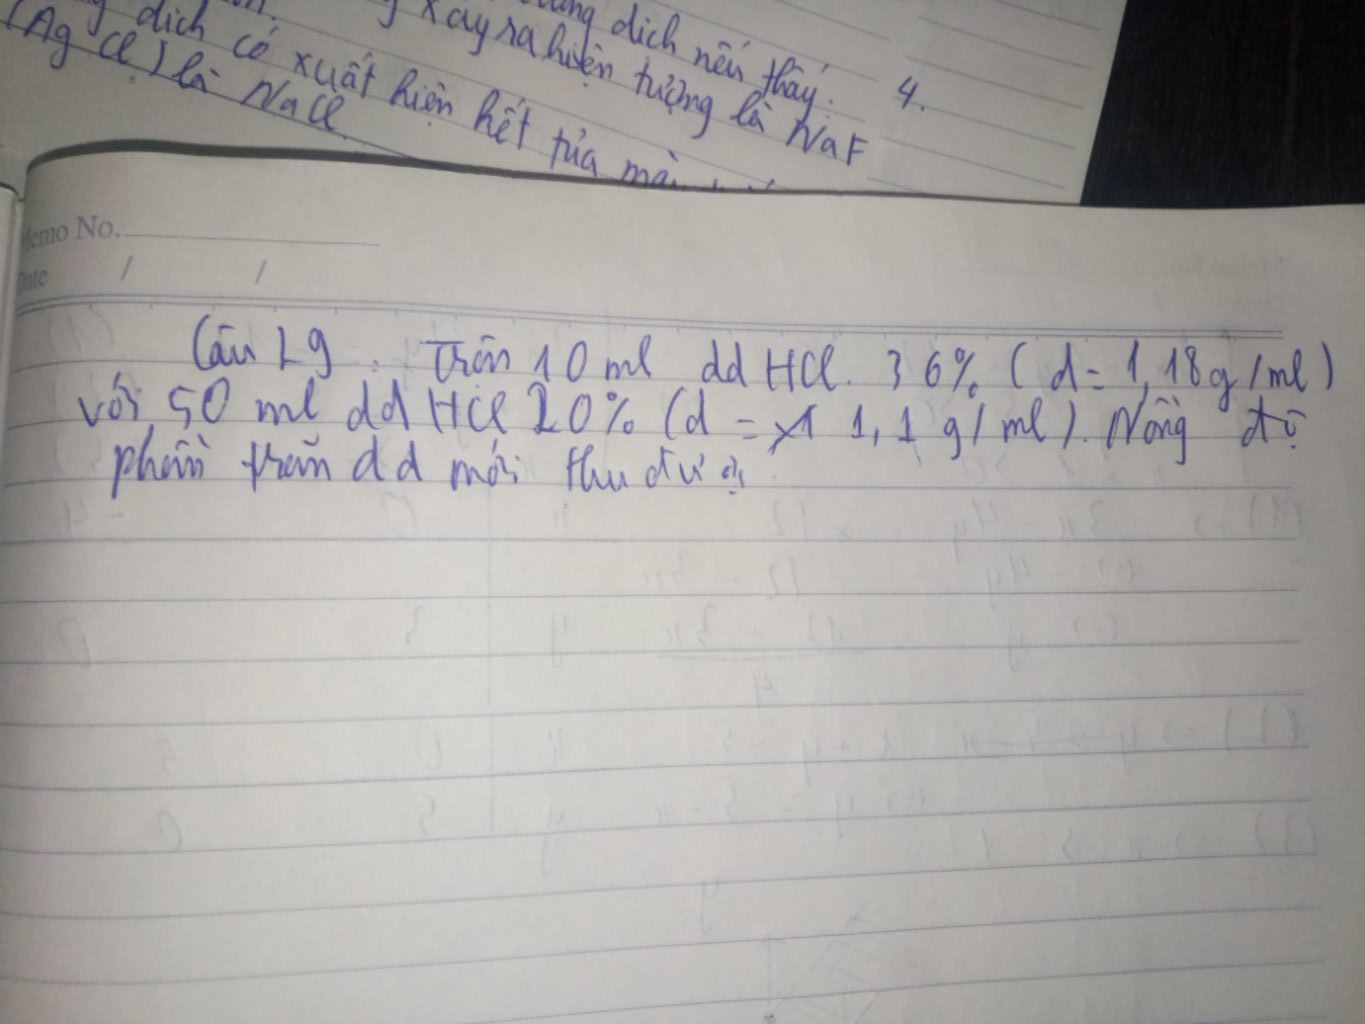 dung dịch nếu thấy.
xảy ra hiện tượng là NaF
dịch có xuất hiện kết tủa mà
(AgCl) là NaCl
4.
Memo No.
Date / /
Câu 29. Trộn 10 ml dd HCl. 36% (d = 1,18g/ml)
với 50 ml dd HCl 20% (d = 1,1 g/ml). Nồng độ
phần trăm dd mới thu được